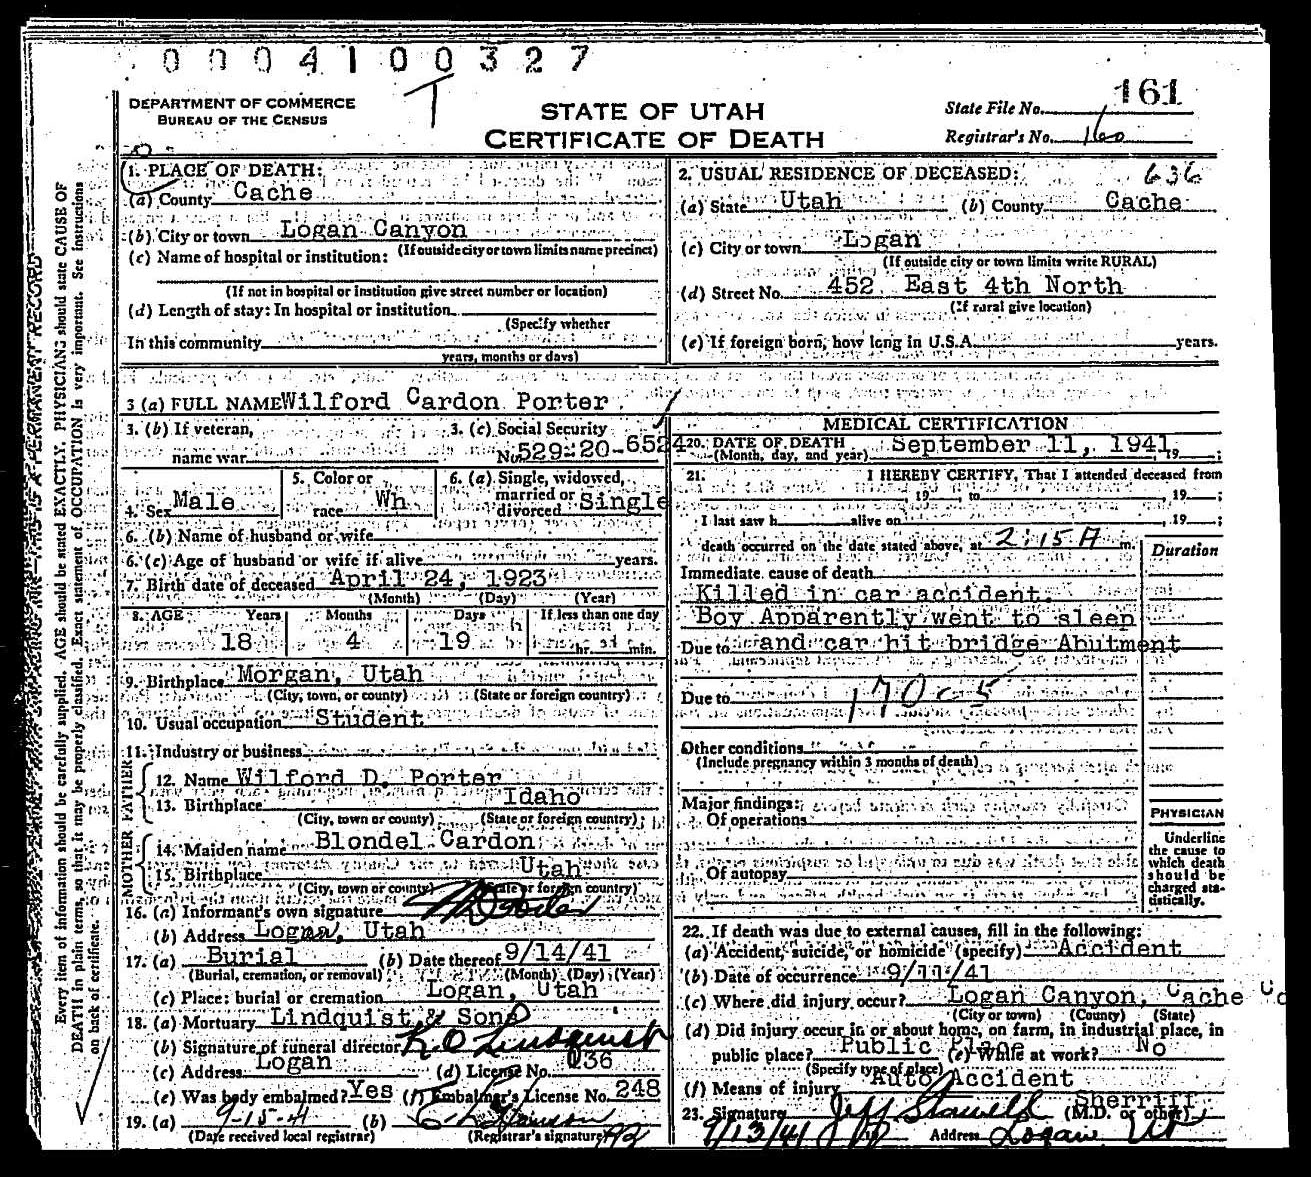 0004100327
T
DEPARTMENT OF COMMERCE
BUREAU OF THE CENSUS
STATE OF UTAH
CERTIFICATE OF DEATH
State File No. 161
Registrar's No. 160
1. PLACE OF DEATH:
(a) County Cache
(b) City or town Logan Canyon
(If outside city or town limits name precinct)
(c) Name of hospital or institution:
(If not in hospital or institution give street number or location)
(d) Length of stay: In hospital or institution
(Specify whether
In this community
years, months or days)
2. USUAL RESIDENCE OF DECEASED: 636
(a) State Utah (b) County Cache
(c) City or town Logan
(If outside city or town limits write RURAL)
(d) Street No. 452 East 4th North
(If rural give location)
(e) If foreign born, how long in U.S.A. years.
3 (a) FULL NAME Wilford Cardon Porter
3. (b) If veteran, name war
3. (c) Social Security No. 529-20-6524
4. Sex Male
5. Color or race Wh
6. (a) Single, widowed, married or divorced Single
6. (b) Name of husband or wife
6. (c) Age of husband or wife if alive years.
7. Birth date of deceased April 24, 1923
(Month) (Day) (Year)
8. AGE Years Months Days If less than one day
18 4 19 hr. min.
9. Birthplace Morgan, Utah
(City, town, or county) (State or foreign country)
10. Usual occupation Student
11. Industry or business
FATHER
12. Name Wilford D. Porter
13. Birthplace Idaho
(City, town or county) (State or foreign country)
MOTHER
14. Maiden name Blondel Cardon
15. Birthplace Utah
(City, town or county) (State or foreign country)
16. (a) Informant's own signature
(b) Address Logan, Utah
17. (a) Burial (b) Date thereof 9/14/41
(Burial, cremation, or removal) (Month) (Day) (Year)
(c) Place: burial or cremation Logan, Utah
18. (a) Mortuary Lindquist & Sons
(b) Signature of funeral director K O Lindquist
(c) Address Logan (d) License No. 036
(e) Was body embalmed? Yes (f) Embalmer's License No. 248
19. (a) 9-15-41 (b)
(Date received local registrar) (Registrar's signature)
MEDICAL CERTIFICATION
20. DATE OF DEATH September 11, 1941 19 ;
(Month, day, and year)
21. I HEREBY CERTIFY, That I attended deceased from
, 19 to , 19 ;
I last saw h alive on , 19 ;
death occurred on the date stated above, at 2:15 A m.
Duration
Immediate cause of death
Killed in car accident.
Boy Apparently went to sleep
Due to and car hit bridge Abutment
Due to 170c-5
Other conditions
(Include pregnancy within 3 months of death)
Major findings:
Of operations
Of autopsy
PHYSICIAN
Underline the cause to which death should be charged statistically.
22. If death was due to external causes, fill in the following:
(a) Accident, suicide, or homicide (specify) Accident
(b) Date of occurrence 9/11/41
(c) Where did injury occur? Logan Canyon, Cache Co
(City or town) (County) (State)
(d) Did injury occur in or about home, on farm, in industrial place, in
public place? Public Place (e) While at work? No
(Specify type of place)
(f) Means of injury Auto Accident
Sherriff
23. Signature Jeff Stowell (M.D. or other)
9/13/41 Address Logan Ut
Every item of information should be carefully supplied. AGE should be stated EXACTLY. PHYSICIANS should state CAUSE OF
DEATH in plain terms, so that it may be properly classified. Exact statement of OCCUPATION is very important. See instructions
on back of certificate.